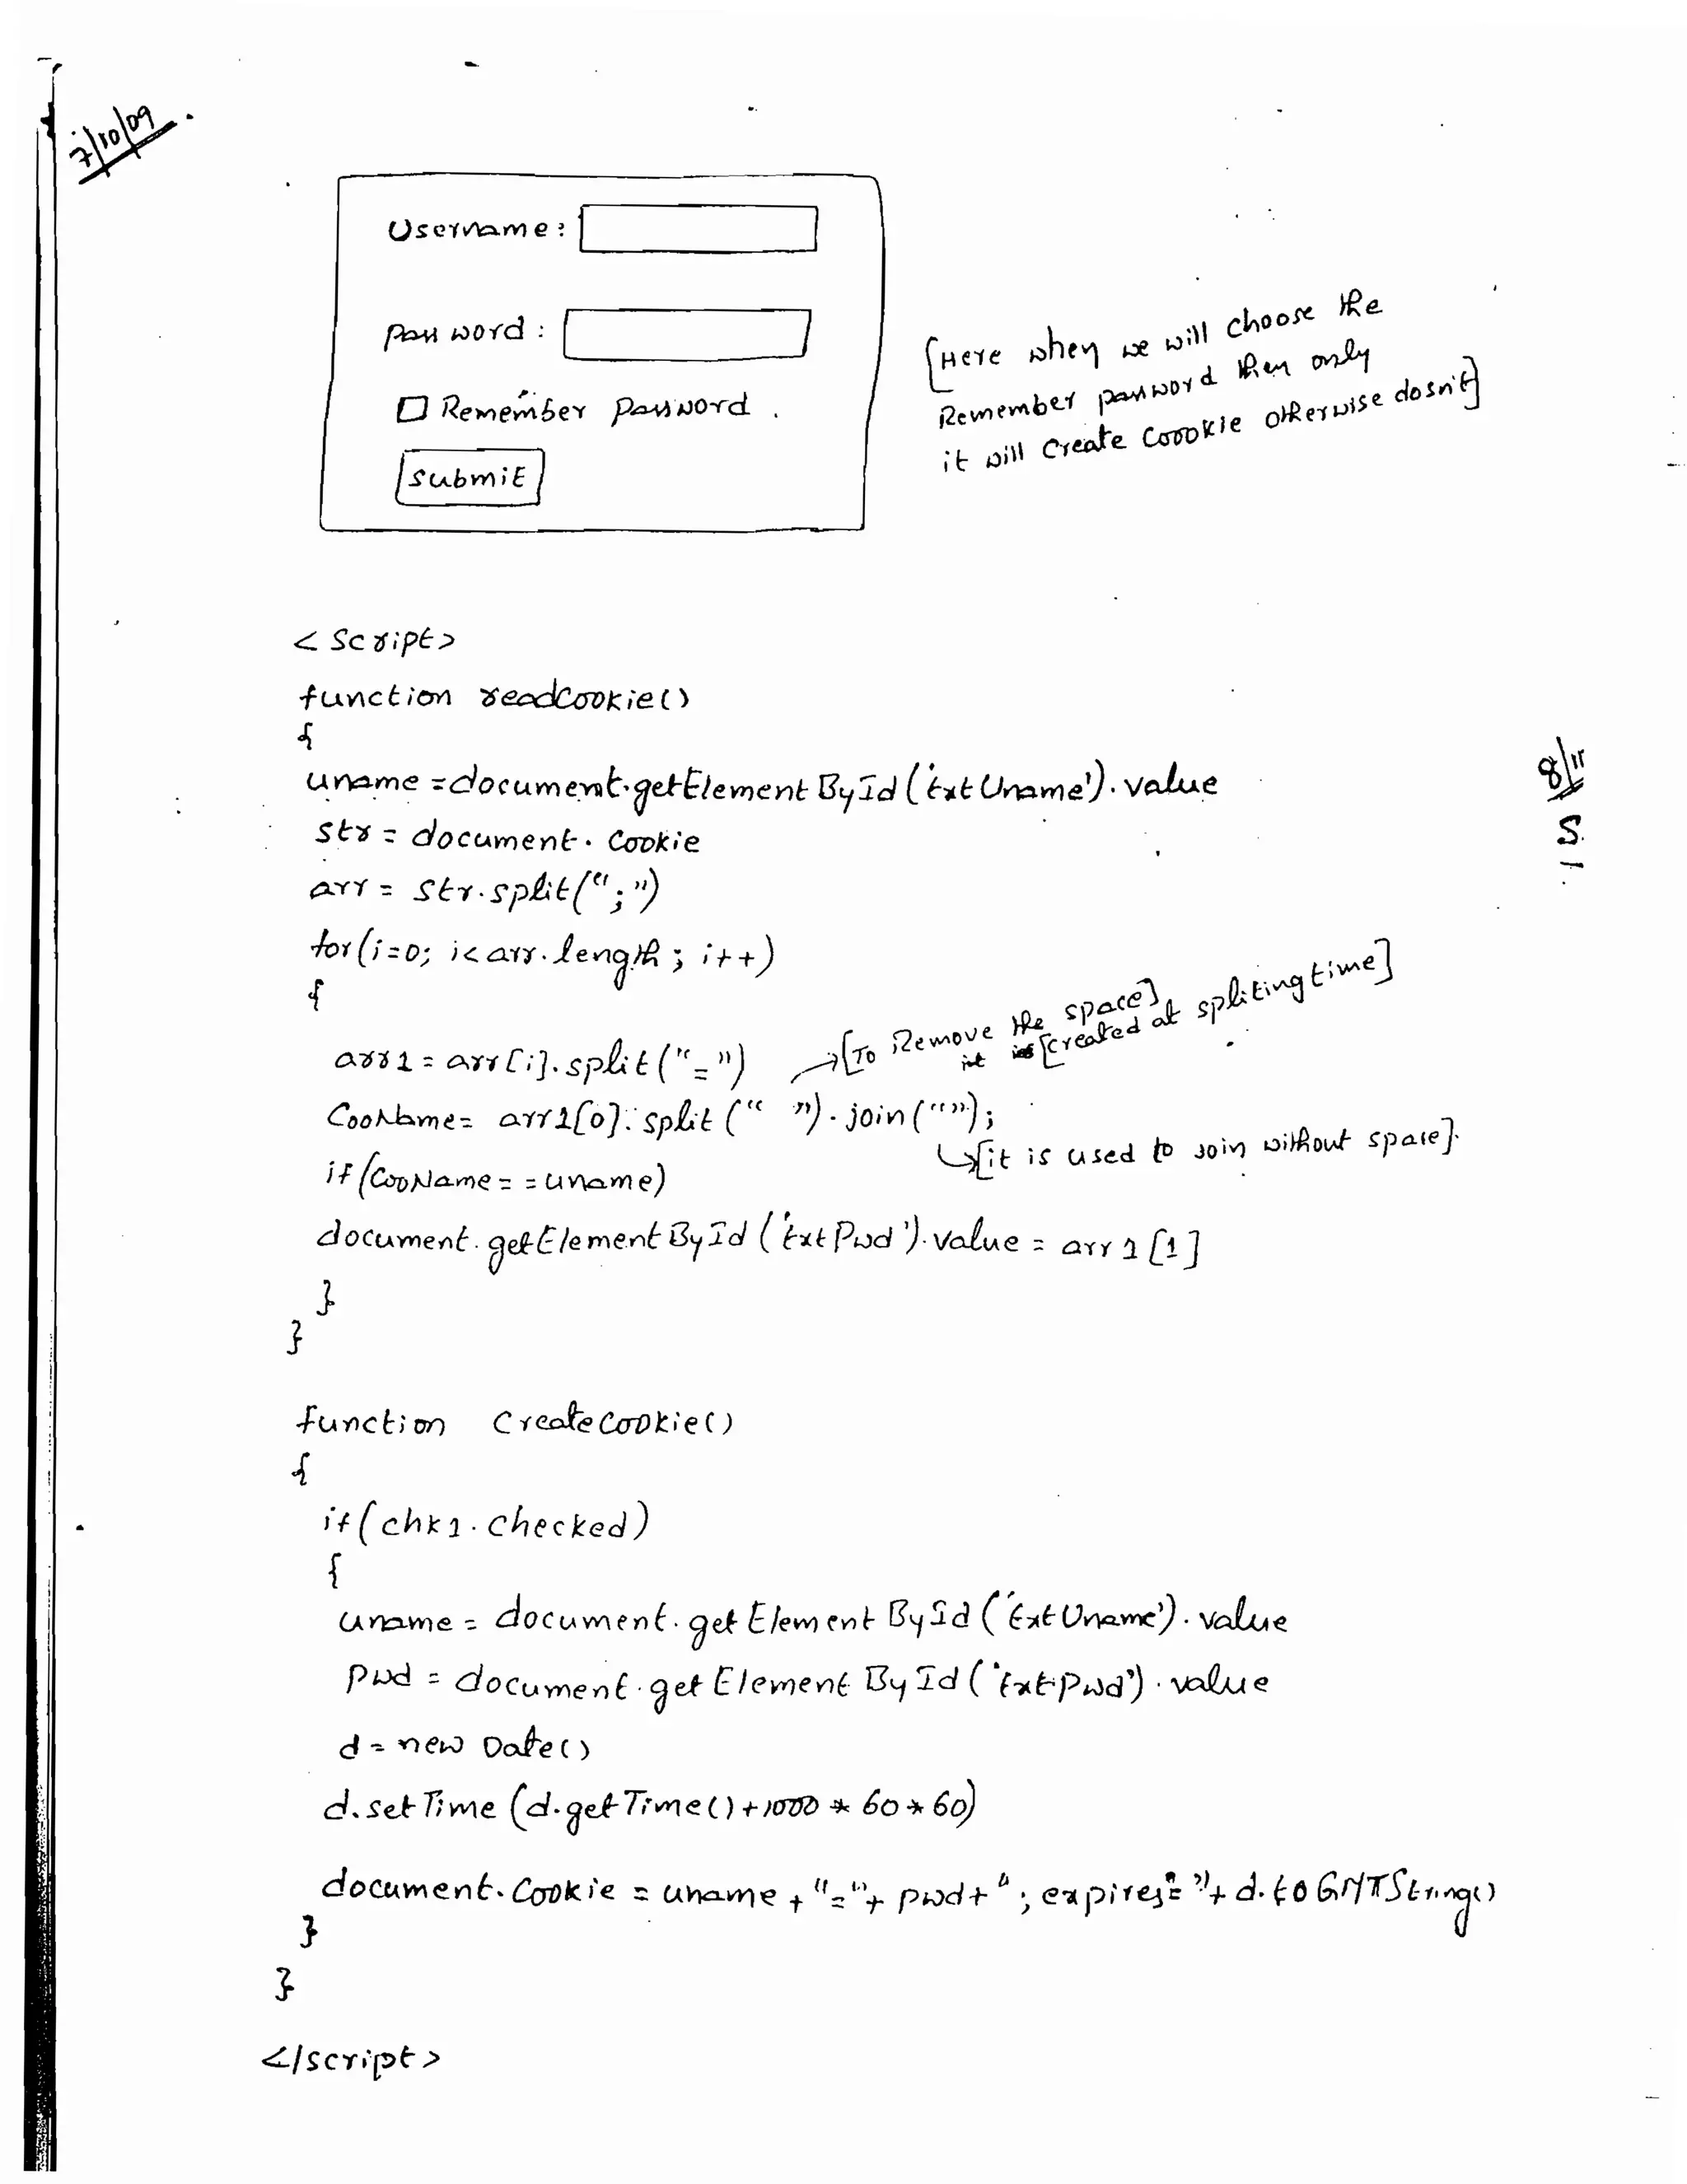 7/10/09
Username:
Password:
Remember Password.
Submit
[Here when we will choose the
Remember password then only
it will create Coookie otherwise dosn't]
<Script>
function readCookie()
{
uname =document.getElementById('txtUname').value
str = document.Cookie
arr = str.split(";")
for(i=0; i<arr.length; i++)
{
arr1 = arr[i].split("=") →[To Remove the space]
it [created at spliting time]
CooName= arr1[0].split(" ").join("");
↳[it is used to join without space].
if(CooName==uname)
document.getElementById('txtPwd').value = arr1[1]
}
}
function CreateCookie()
{
if(chk1.checked)
{
uname = document.getElementById('txtUname').value
pwd = document.getElementById('txtPwd').value
d = new Date()
d.setTime(d.getTime()+1000*60*60)
document.Cookie = uname+"="+pwd+"; expires="+d.toGMTString()
}
}
</script>